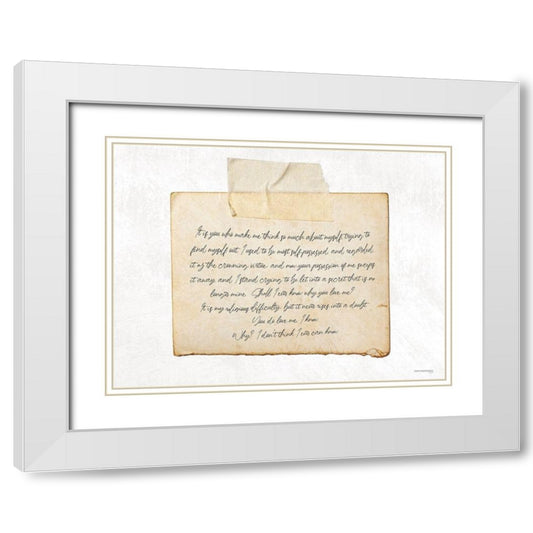 It is you who make me think so much about myself trying to
find myself out. I used to be most self-possessed, and regarded
it as the crowning virtue, and now your possession of me sweeps
it away, and I stand crying to be let into a secret that is no
longer mine. Shall I ever know why you love me?
It is my religious difficulty; but it never rises into a doubt.
You do love me, I know.
Why? I don't think I ever can know.